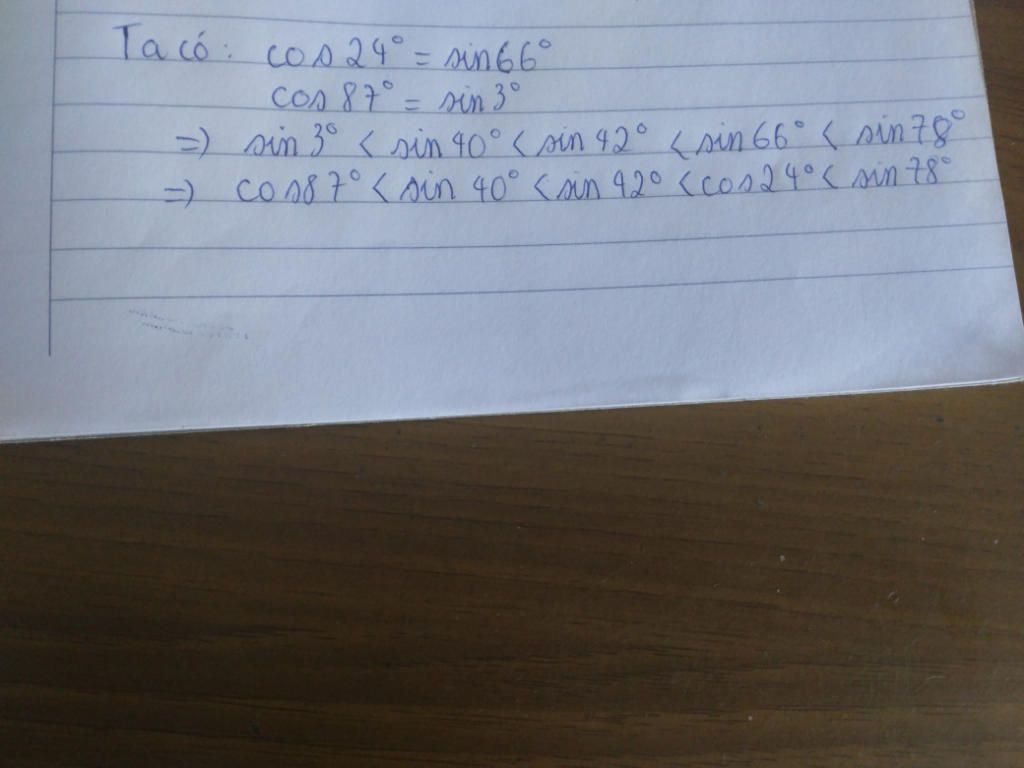 Ta có: cos 24° = sin 66°
cos 87° = sin 3°
=> sin 3° < sin 40° < sin 42° < sin 66° < sin 78°
=> cos 87° < sin 40° < sin 42° < cos 24° < sin 78°